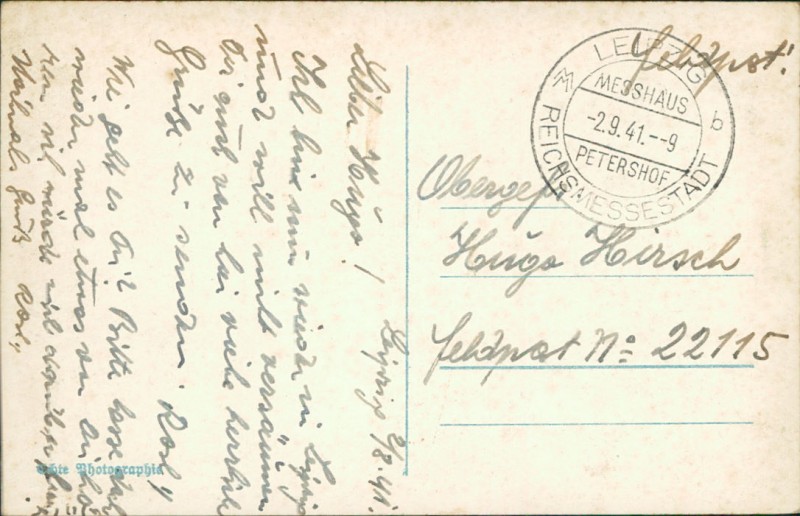 Leipzig 2/8.41.
Lieber Hugo!
Ihl bin nun wieder in Leipzig
und will nicht versäumen
Dir und von hier viele herzliche
Grüße zu senden. Karl
Wie geht es Dir? Bitte lasse doch
wieder mal etwas von Dir hören
mich
Nochmals Gruß Karl
Echte Photographie
Feldpost!
LEIPZIG
b
MESSHAUS
-2.9.41.--9
PETERSHOF
REICHSMESSESTADT
Obergefr.
Hugo Hirsch
Feldpost No 22115